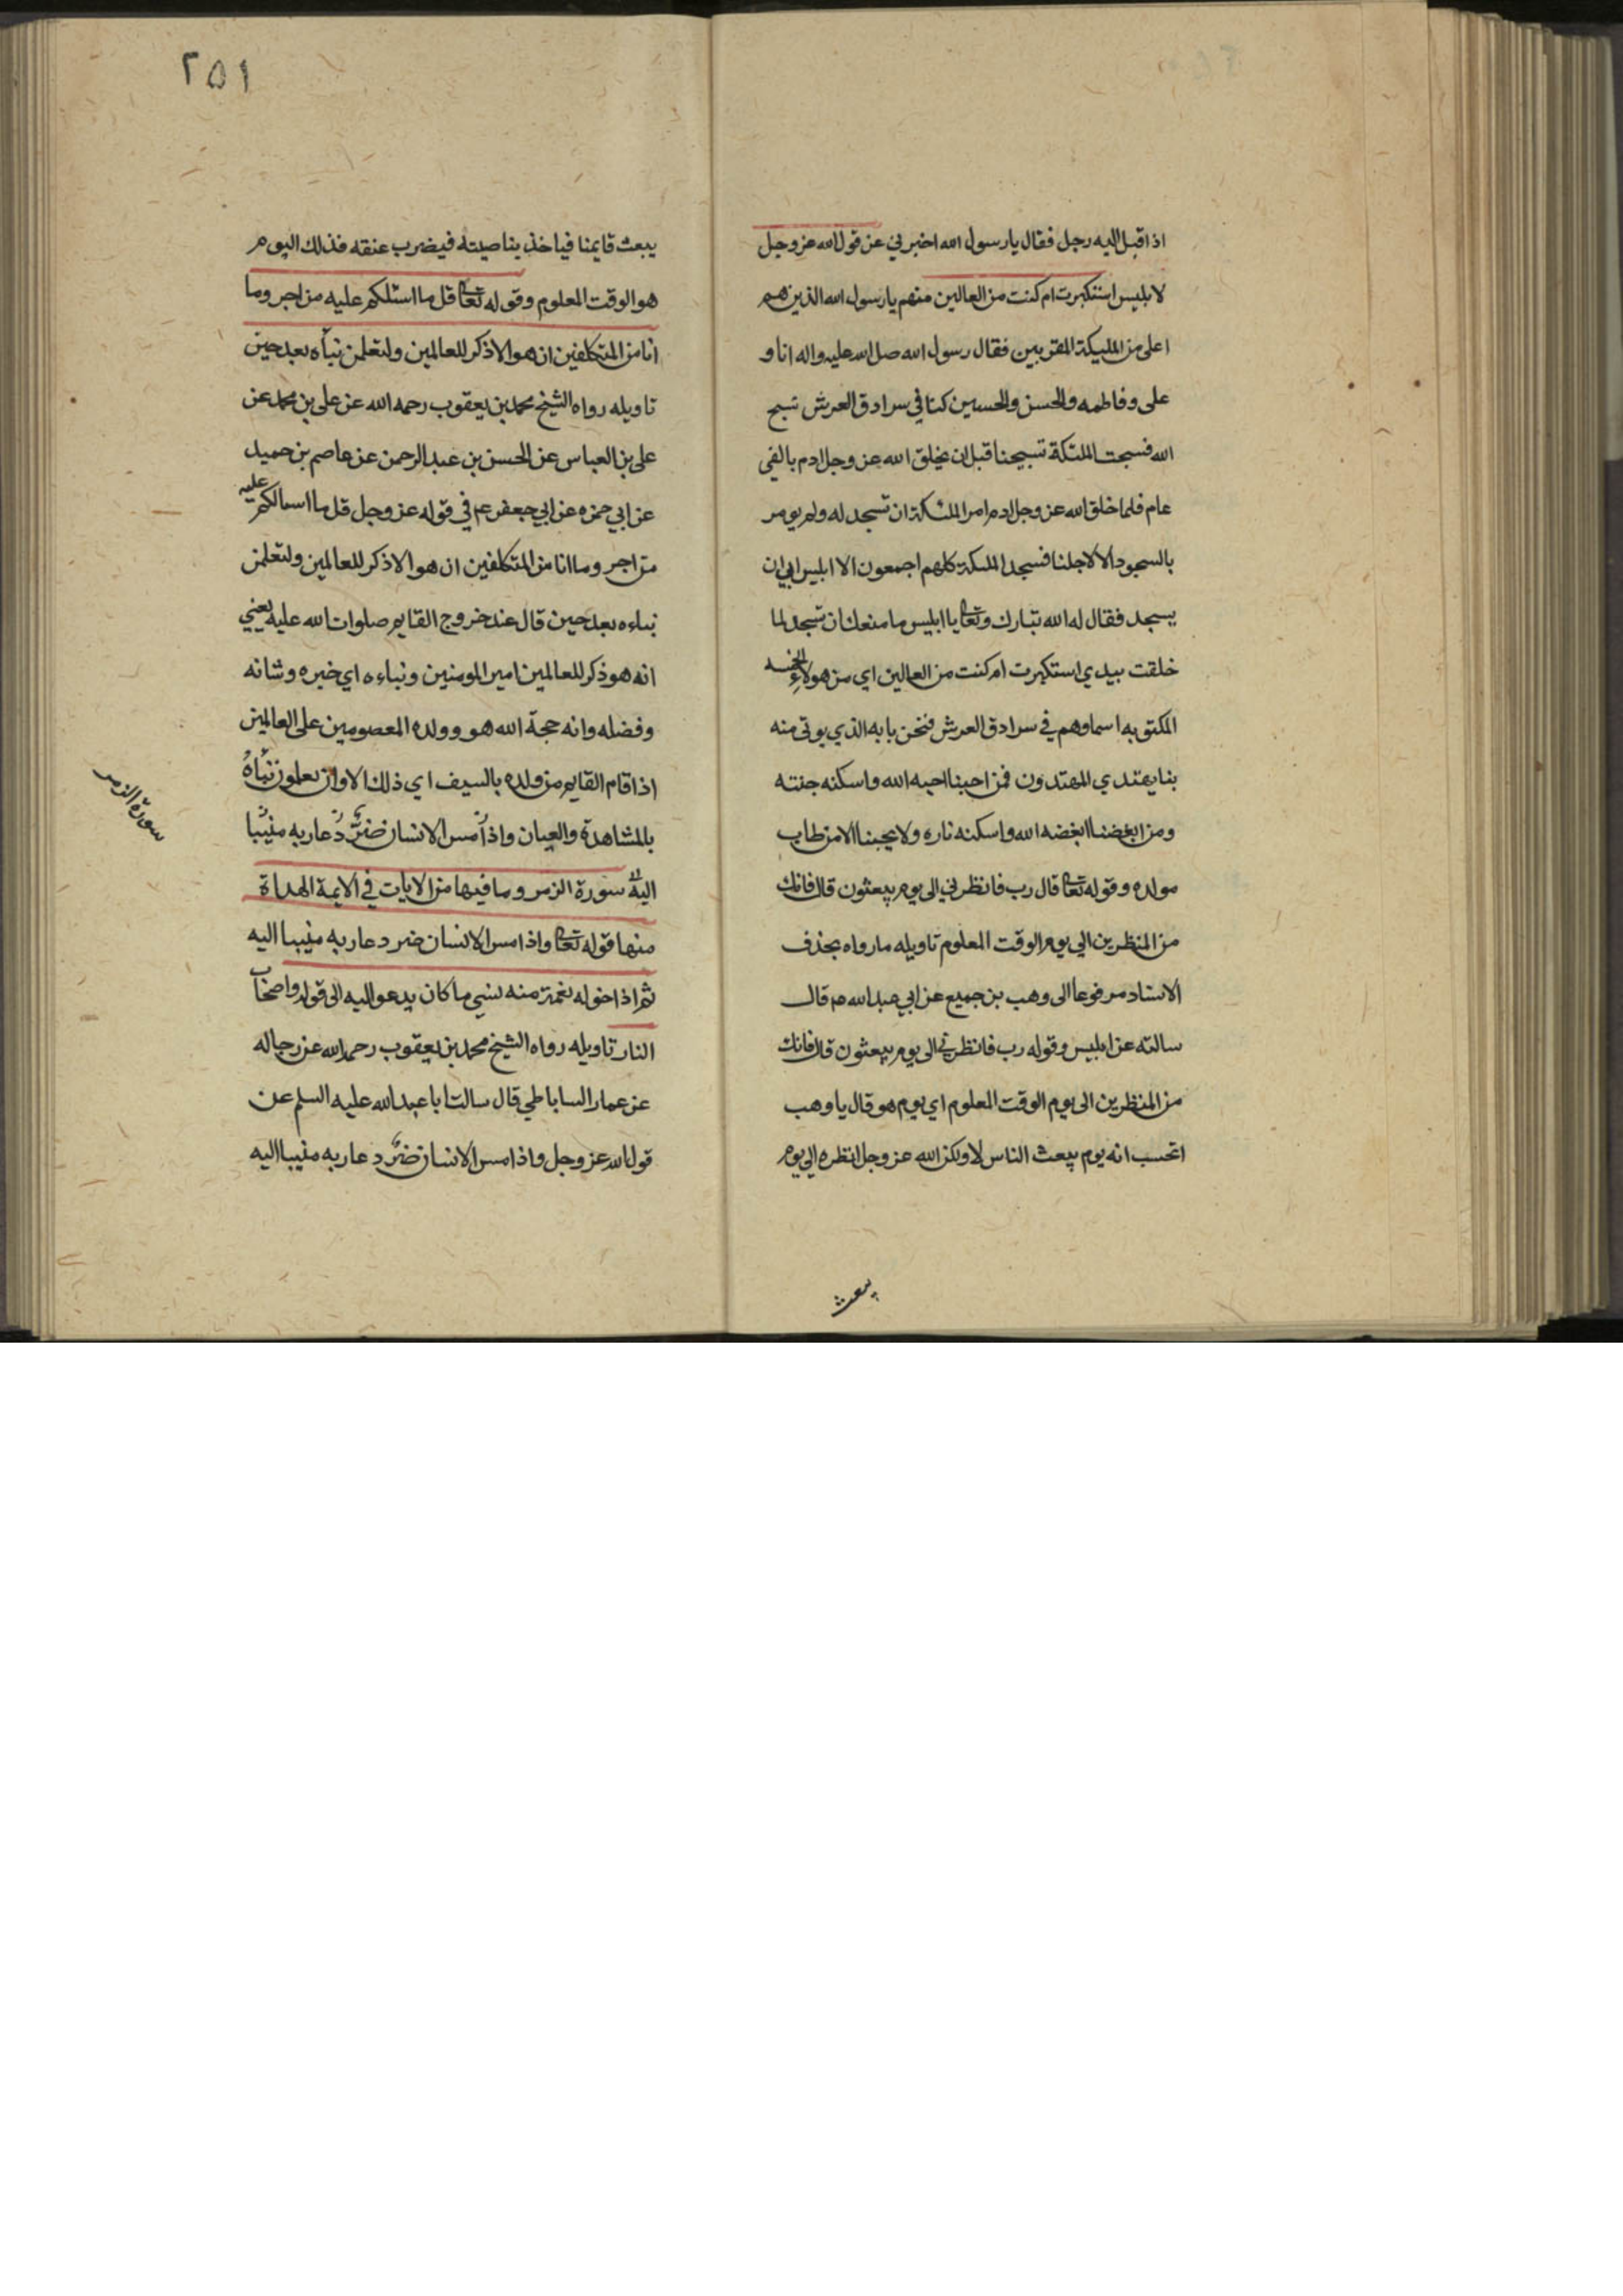 اذا اقبل اليه رجل فقال يا رسول الله اخبرني عن قول الله عز وجل
لابليس استكبرت ام كنت من العالين منهم يا رسول الله الذين هم
اعلى من المليكة المقربين فقال رسول الله صلى الله عليه واله انا و
على وفاطمه والحسن والحسين كنا في سرادق العرش نسبح
الله فسبحت الملئكة تسبيحنا قبل ان يخلق الله عز وجل ادم بالفى
عام فلما خلق الله عز وجل ادم امر الملئكة ان تسجد له ولم يومر
بالسجود الا لاجلنا فسجد الملئكة كلهم اجمعون الا ابليس ابى ان
يسجد فقال له الله تبارك وتعا يا ابليس ما منعك ان تسجد لما
خلقت بيدي استكبرت ام كنت من العالين اي من هولاء الخمسه
المكتوبه اسماوهم في سرادق العرش فنحن بابه الذي يوتى منه
بنا يهتدي المهتدون فمن احبنا احبه الله واسكنه جنته
ومن ابغضنا ابغضه الله واسكنه ناره ولا يحبنا الا من طاب
مولده وقوله تعا قال رب فانظرني الى يوم يبعثون قال فانك
من المنظرين الى يوم الوقت المعلوم تاويله ما رواه بحذف
الاسناد مرفوعا الى وهب بن جميع عن ابي عبد الله م قال
سالته عن ابليس وقوله رب فانظرني الى يوم يبعثون قال فانك
من المنظرين الى يوم الوقت المعلوم اي يوم هو قال يا وهب
اتحسب انه يوم يبعث الناس لا ولكن الله عز وجل انظره الى يوم
يبعث
٢٥١
يبعث قايمنا فياخذ بناصيته فيضرب عنقه فذلك اليوم
هو الوقت المعلوم وقوله تعا قل ما اسئلكم عليه من اجر وما
انا من المتكلفين ان هو الا ذكر للعالمين ولتعلمن نباه بعد حين
تاويله رواه الشيخ محمد بن يعقوب رحمه الله عن على بن محمد عن
على بن العباس عن الحسن بن عبد الرحمن عن عاصم بن حميد
عن ابي حمزه عن ابي جعفر عم في قوله عز وجل قل ما اسالكم عليه
من اجر وما انا من المتكلفين ان هو الا ذكر للعالمين ولتعلمن
نباءه بعد حين قال عند خروج القايم صلوات الله عليه يعني
انه هو ذكر للعالمين امير المومنين ونباءه اي خبره وشانه
وفضله وانه حجة الله هو وولده المعصومين على العالمين
اذا قام القايم من ولده بالسيف اي ذلك الاوان يعلمون نَبَأهُ
بالمشاهدة والعيان واذا مس الانسان ضرٌّ دُعا ربه منيبا
اليه سورة الزمر وما فيها من الايات في الايمة الهداة
سورة الزمر
منها قوله تعا واذا مس الانسان ضر دعا ربه منيبا اليه
ثم اذا خوله نعمة منه نسي ما كان يدعوا اليه الى قوله واصحاب
النار تاويله رواه الشيخ محمد بن يعقوب رحمه الله عن رجاله
عن عمار الساباطي قال سالت ابا عبد الله عليه السلم عن
قول الله عز وجل واذا مس الانسان ضرٌّ دعا ربه منيبا اليه